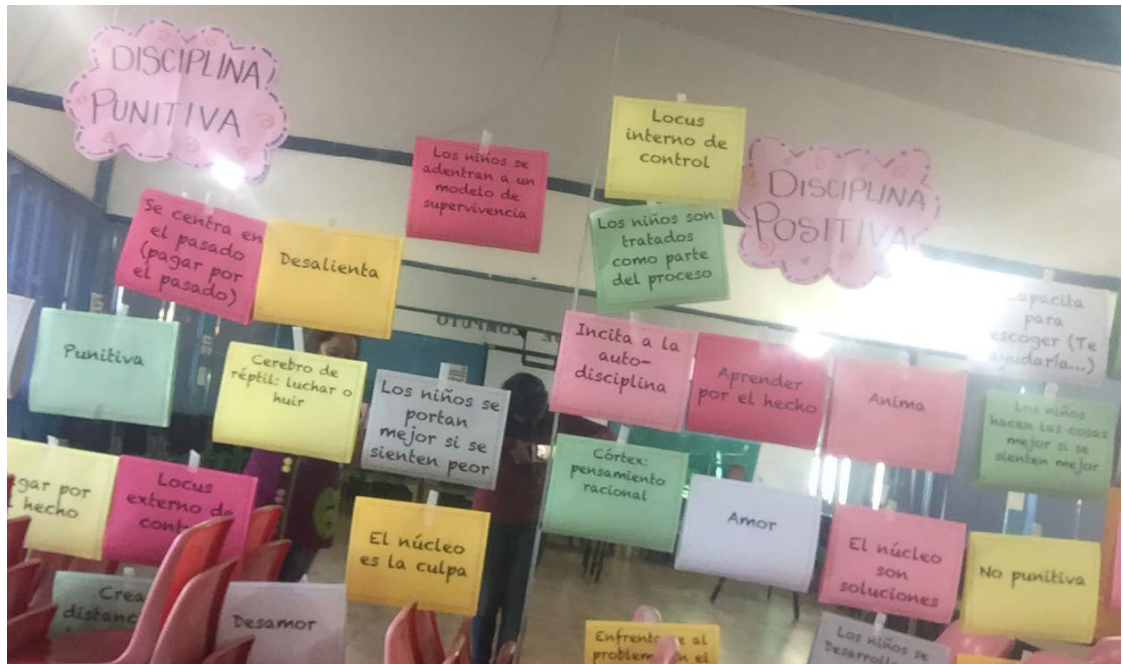 DISCIPLINA
PUNITIVA
Los niños se
adentran a un
modelo de
supervivencia
Se centra en
el pasado
(pagar por
el pasado)
Desalienta
Punitiva
Cerebro de
réptil: luchar o
huir
Los niños se
portan
mejor si se
sienten peor
gar por
hecho
Locus
externo de
El núcleo
es la culpa
Crea
Desamor
Locus
interno de
control
DISCIPLINA
POSITIVA
Los niños son
tratados
como parte
del proceso
apacita
para
escoger (Te
ayudaría...)
Incita a la
auto-
disciplina
Aprender
por el hecho
Anima
Los niños
hacen las cosas
mejor si se
sienten mejor
Córtex:
pensamiento
racional
Amor
El núcleo
son
soluciones
No punitiva
al
el
Los niños se